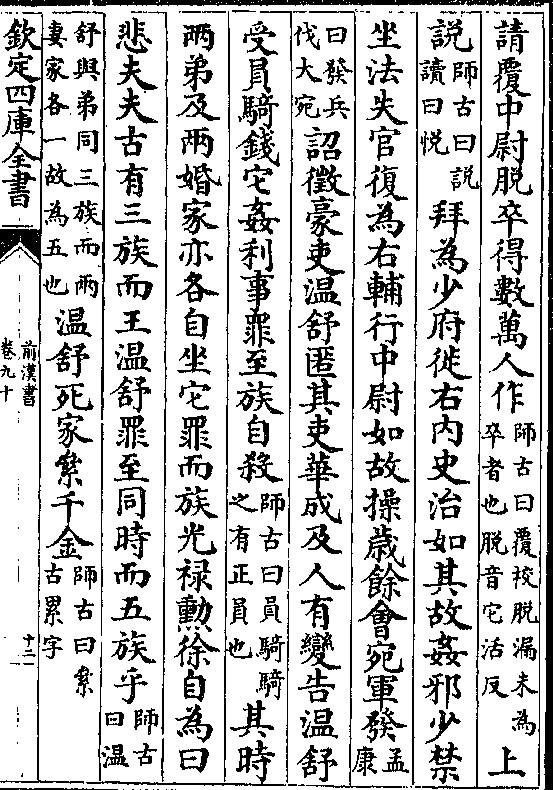 請覆中尉脱卒得數萬人作師古曰覆校脱漏未為卒者也脱音它活反上
説師古曰説讀曰悦拜為少府徙右内史治如其故姦邪少禁
坐法失官復為右輔行中尉如故操歳餘會宛軍發孟康
曰發兵伐大宛詔徴豪吏温舒匿其吏華成及人有變告温舒
受員騎錢它姦利事罪至族自殺師古曰員騎騎之有正員也其時
兩弟及兩婚家亦各自坐它罪而族光禄勲徐自為曰
悲夫夫古有三族而王温舒罪至同時而五族乎師古曰温
舒與弟同三族而兩妻家各一故為五也温舒死家絫千金師古曰絫古累字
欽定四庫全書
前漢書
卷九十
十二